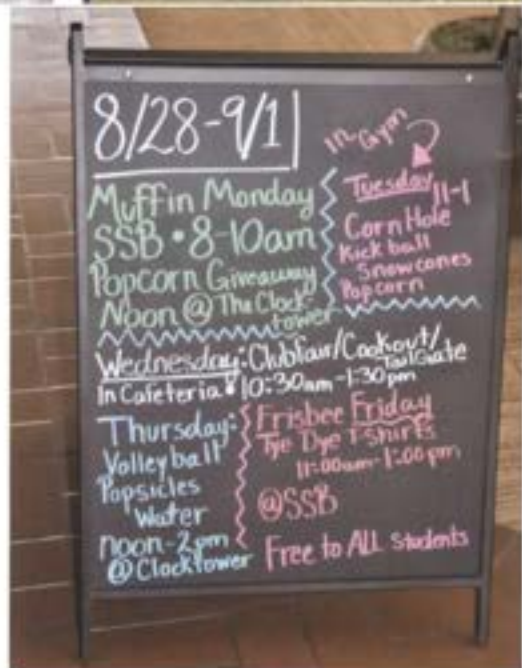 8/28-9/1
Muffin Monday
SSB • 8-10am
Popcorn Giveaway
Noon @ The Clock-
tower
In Gym
Tuesday 11-1
Corn Hole
Kick ball
Snowcones
Popcorn
Wednesday: Clubfair/Cookout/
TailGate
In Cafeteria • 10:30am-1:30pm
Thursday:
Volleyball
Popsicles
Water
noon-2pm
@ Clocktower
Frisbee Friday
Tye Dye T-Shirts
11:00am-1:00pm
@SSB
Free to ALL Students